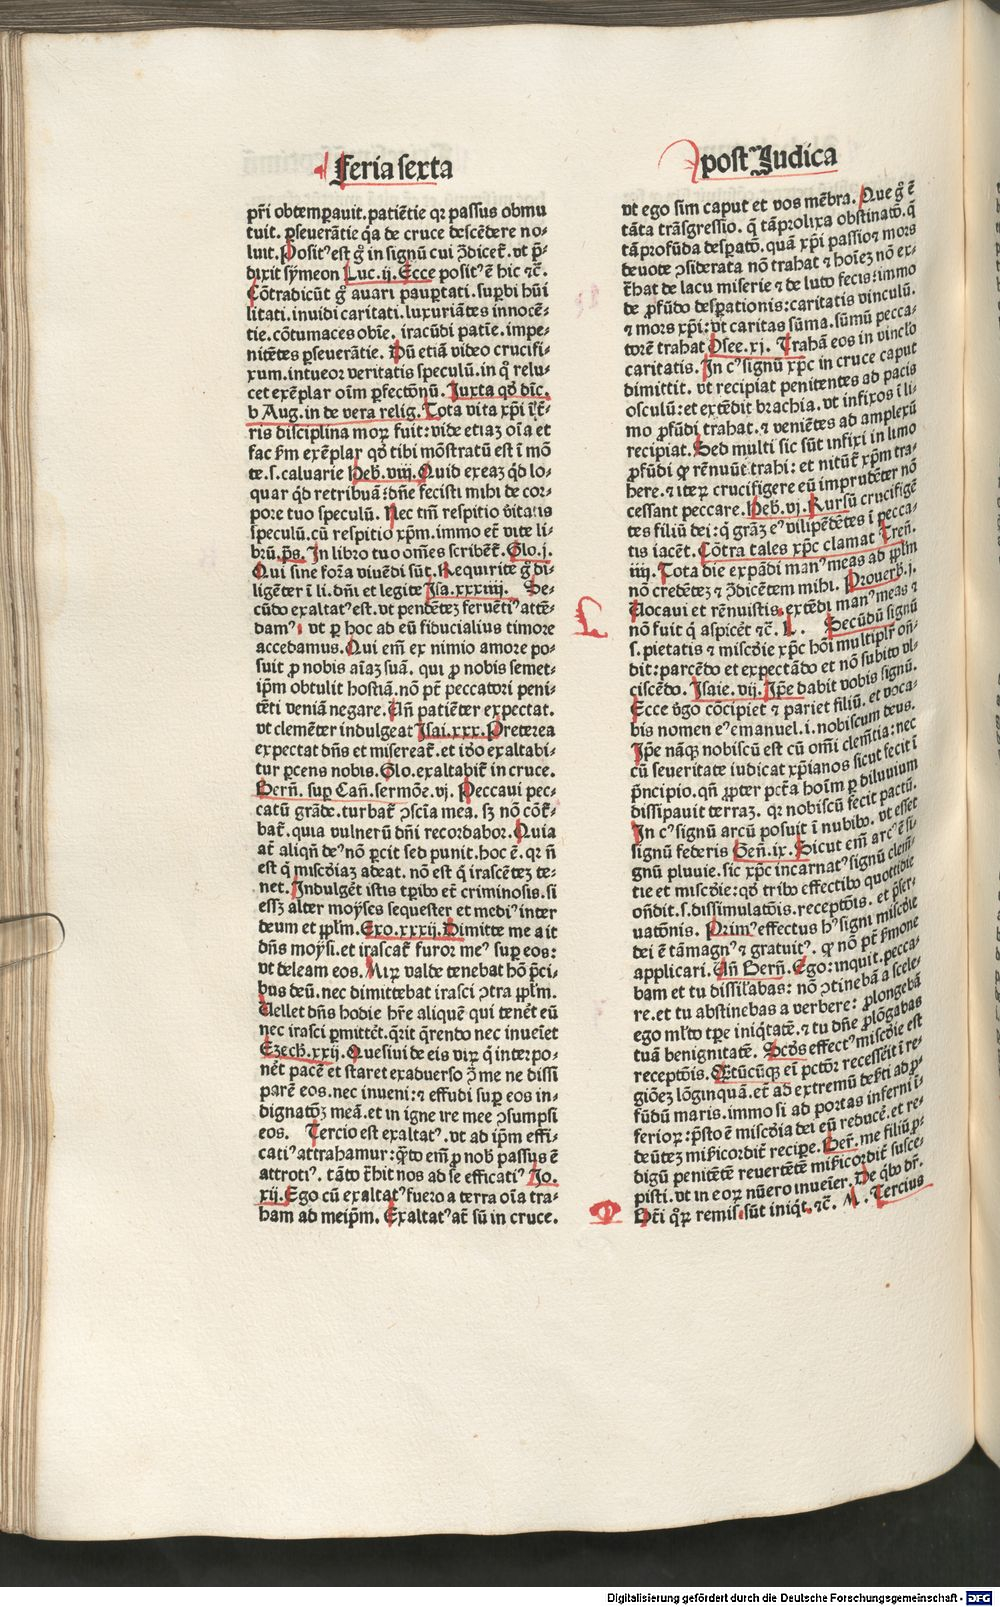 Feria sexta
post Judica
pr̄i obtemꝑauit. patiētie qꝛ passus obmu
tuit. ꝑseuerātie q̇a de cruce descēdere no-
luit. Posit⁹ est g̊ in signū cui ꝯdicet̄. vt p̄-
dixit symeon Luc. ij. Ecce posit⁹ ē hic ⁊c̄.
Cōtradicūt g̊ auari pauꝑtati. suꝑbi hūi
litati. inuidi caritati. luxuriātes innocē-
tie. cōtumaces obīe. iracūdi patīe. impe-
nitētes ꝑseuerātie. Dū etiā video crucifi-
xum. intueor veritatis speculū. in q̊ relu-
cet exēplar oīm ꝑfectōnū. Juxta qd̓ dic̄.
b Aug. in de vera relig. Tota vita xp̄i ī t̄r-
ris disciplina moꝝ fuit: vide etiaꝫ oīa et
fac ẜm exēplar qd̓ tibi mōstratū est ī mō
te. s. caluarie Heb̄. viij. Quid exeaꝫ q̇d lo-
quar q̇d retribuā: dn̄e fecisti mihi de cor-
pore tuo speculū. Nec tm̄ respitio v̓itatis
speculū. cū respitio xp̄m. immo et̄ vite li-
brū. p̄s. In libro tuo om̄es scribēt̄. Glo. j.
Qui sine forma viuēdi sūt. Requirite g̊ di-
ligēter ī li. dn̄i et legite Isa. xxxiiij. Se-
cūdo exaltat⁹ est. vt pendēteꝫ feruēti⁹ attē-
dam⁹. vt ꝑ hoc ad eū fiducialius timore
accedamus. Qui em̄ ex nimio amore po-
suit ꝓ nobis aīaꝫ suā. qui ꝓ nobis semet-
ip̄m obtulit hostiā. nō pt̄ peccatori peni-
tēti veniā negare. An̄ patiēter expectat.
vt clemēter indulgeat Isai. xxx. Preterea
expectat dn̄s et misereat̄. et iō exaltabi-
tur ꝑcens nobis. Glo. exaltabit̄ in cruce.
Bern̄. suꝑ Can̄. sermōe. vj. Peccaui pec-
catū grāde. turbat̄ ꝯscīa mea. sꝫ nō cōt̄-
bat̄. quia vulnerū dn̄i recordabor. Quia
at̄ aliqn̄ de⁹ nō ꝑcit sed punit. hoc ē. qꝛ n̄
est q̇ mis̄cdiaꝫ adeat. nō est q̇ irascēteꝫ te-
net. Indulgēt istis tꝑib⁹ et̄ criminosis. si
esset alter moyses sequester et medi⁹ inter
deum et ppl̄m. Exo. xxxij. Dimitte me ait
dn̄s moysi. et irascat̄ furor me⁹ suꝑ eos:
vt deleam eos. Miꝝ valde tenebat hō p̄ci-
bus deū. nec dimittebat irasci ꝯtra ppl̄m.
Vellet dn̄s hodie hr̄e aliquē qui tenēt eū
nec irasci ꝑmittēt. q̄rit q̄rendo nec inueīet
Ezech. xxij. Quesiui de eis viꝝ q̇ interpo-
nēt pacē et staret exaduerso ꝯ̄ me ne dissi
parē eos. nec inueni: ⁊ effudi suꝑ eos in-
dignatōꝫ meā. et in igne ire mee ꝯsumpsi
eos. Tercio est exaltat⁹. vt ad ip̄m effi-
cati⁹ attrahamur: q̄to em̄ ꝓ nob̄ passus ē
attroti⁹. tāto t̄hit nos ad se efficati⁹ Jo.
xij. Ego cū exaltat⁹ fuero a terra oīa tra-
ham ad meip̄m. Exaltat⁹ at̄ sū in cruce.
vt ego sim caput et vos mēbra. Que g̊ ē
tāta trāsgressio. q̄ tāꝓlixa obstinatō. q̄
tāꝓfūda desꝑatō. quā xp̄i passio ⁊ mors
deuote ꝯsiderata nō trahat ⁊ hoīeꝫ nō ex-
t̄hat de lacu miserie ⁊ de luto fecis: immo
de ꝓfūdo desꝑationis: caritatis vinculū.
⁊ mors xp̄i: vt caritas sūma. sūmū pecca-
torē trahat Osee. xj. Trahā eos in vincl̄o
caritatis. In c⁹ signū xp̄c in cruce caput
dimittit. vt recipiat penitentes ad pacis
osculū: et extēdit brachia. vt infixos ī li-
mo ꝓfūdi trahat. ⁊ veniētes ad amplexū
recipiat. Sed multi sic sūt infixi in limo
ꝓfūdi ꝙ rēnuūt trahi: et nitūt̄ xp̄m tra-
here. ⁊ iteꝝ crucifigere eū imprudēter nō
cessant peccare. Heb̄. vj. Rursū crucifigē
tes filiū dei: q̇ grāꝫ e⁹ vilipēdētes ī pecca-
tis iacēt. Cōtra tales xp̄c clamat Tren̄.
iiij. Tota die expādi man⁹ meas ad ppl̄m
nō credēteꝫ ⁊ ꝯdicētem mihi. Prouerb̄. j.
Vocaui et rēnuistis. extēdi man⁹ meas ⁊
nō fuit q̇ aspicēt ⁊c̄. L. Secūdū signū
L
s. pietatis ⁊ mis̄cdie xp̄c hōi multiplr̄ on̄-
dit: parcēdo et expectādo et nō subito vl-
ciscēdo. Isaie. vij. Ip̄e dabit vobis signū.
Ecce v̓go cōcipiet ⁊ pariet filiū. et voca-
bis nomen e⁹ emanuel. i. nobiscum deus.
Ip̄e nāq̄ nobiscū est cū om̄i clem̄tia: nec
cū seueritate iudicat xp̄ianos sicut fecit ī
p̄ncipio. qn̄ ꝓpter pctā hoīm ꝑ diluuium
dissipauit terraꝫ. qꝛ nobiscū fecit pactū.
In c⁹ signū arcū posuit ī nubib⁹. vt esset
signū federis Gen̄. ix. Sicut em̄ arc⁹ ē si-
gnū pluuie. sic xp̄c incarnat⁹ signū clem̄-
tie et mis̄cdie: qd̓ trib⁹ effectib⁹ quottidie
on̄dit. s. dissimulatōis. receptōis. et p̄ser-
uatōnis. Prim⁹ effectus h⁹ signi mis̄cdie
dei ē tāmagn⁹ ⁊ gratuit⁹. ꝙ nō pt̄ ẜmone
applicari. Un̄ Bern̄. Ego: inquit. pecca-
bam et tu dissil̄abas: nō ꝯtinebā a scele-
re. et tu abstinebas a verbere: ꝓlongebā
ego ml̄to tꝑe iniq̇tatē. ⁊ tu dn̄e ꝓlōgabas
tuā benignitatē. Scd̓s effect⁹ mis̄cdie est
receptōis. Qn̄cūqꝫ eī pctōr recesseīt ī re-
giōeꝫ lōginquā. et̄ ad extremū dek̄ti ad ꝓ-
fūdū maris. immo si ad portas inferni ī-
ferioꝝ: p̄sto ē mis̄cdia dei eū reducē. et re-
deūteꝫ mīsicordit̄ reciꝑe. Ber̄. me filiū ꝓ-
digū penitētē reuertētē mīsicordit̄ susce-
pisti. vt in eoꝝ nūero inueīer. De q̇b⁹ dr̄.
Bt̄i q̊ꝝ remis. sūt iniq̇t. ⁊c̄. M. Tercius
M
Digitalisierung gefördert durch die Deutsche Forschungsgemeinschaft - DFG